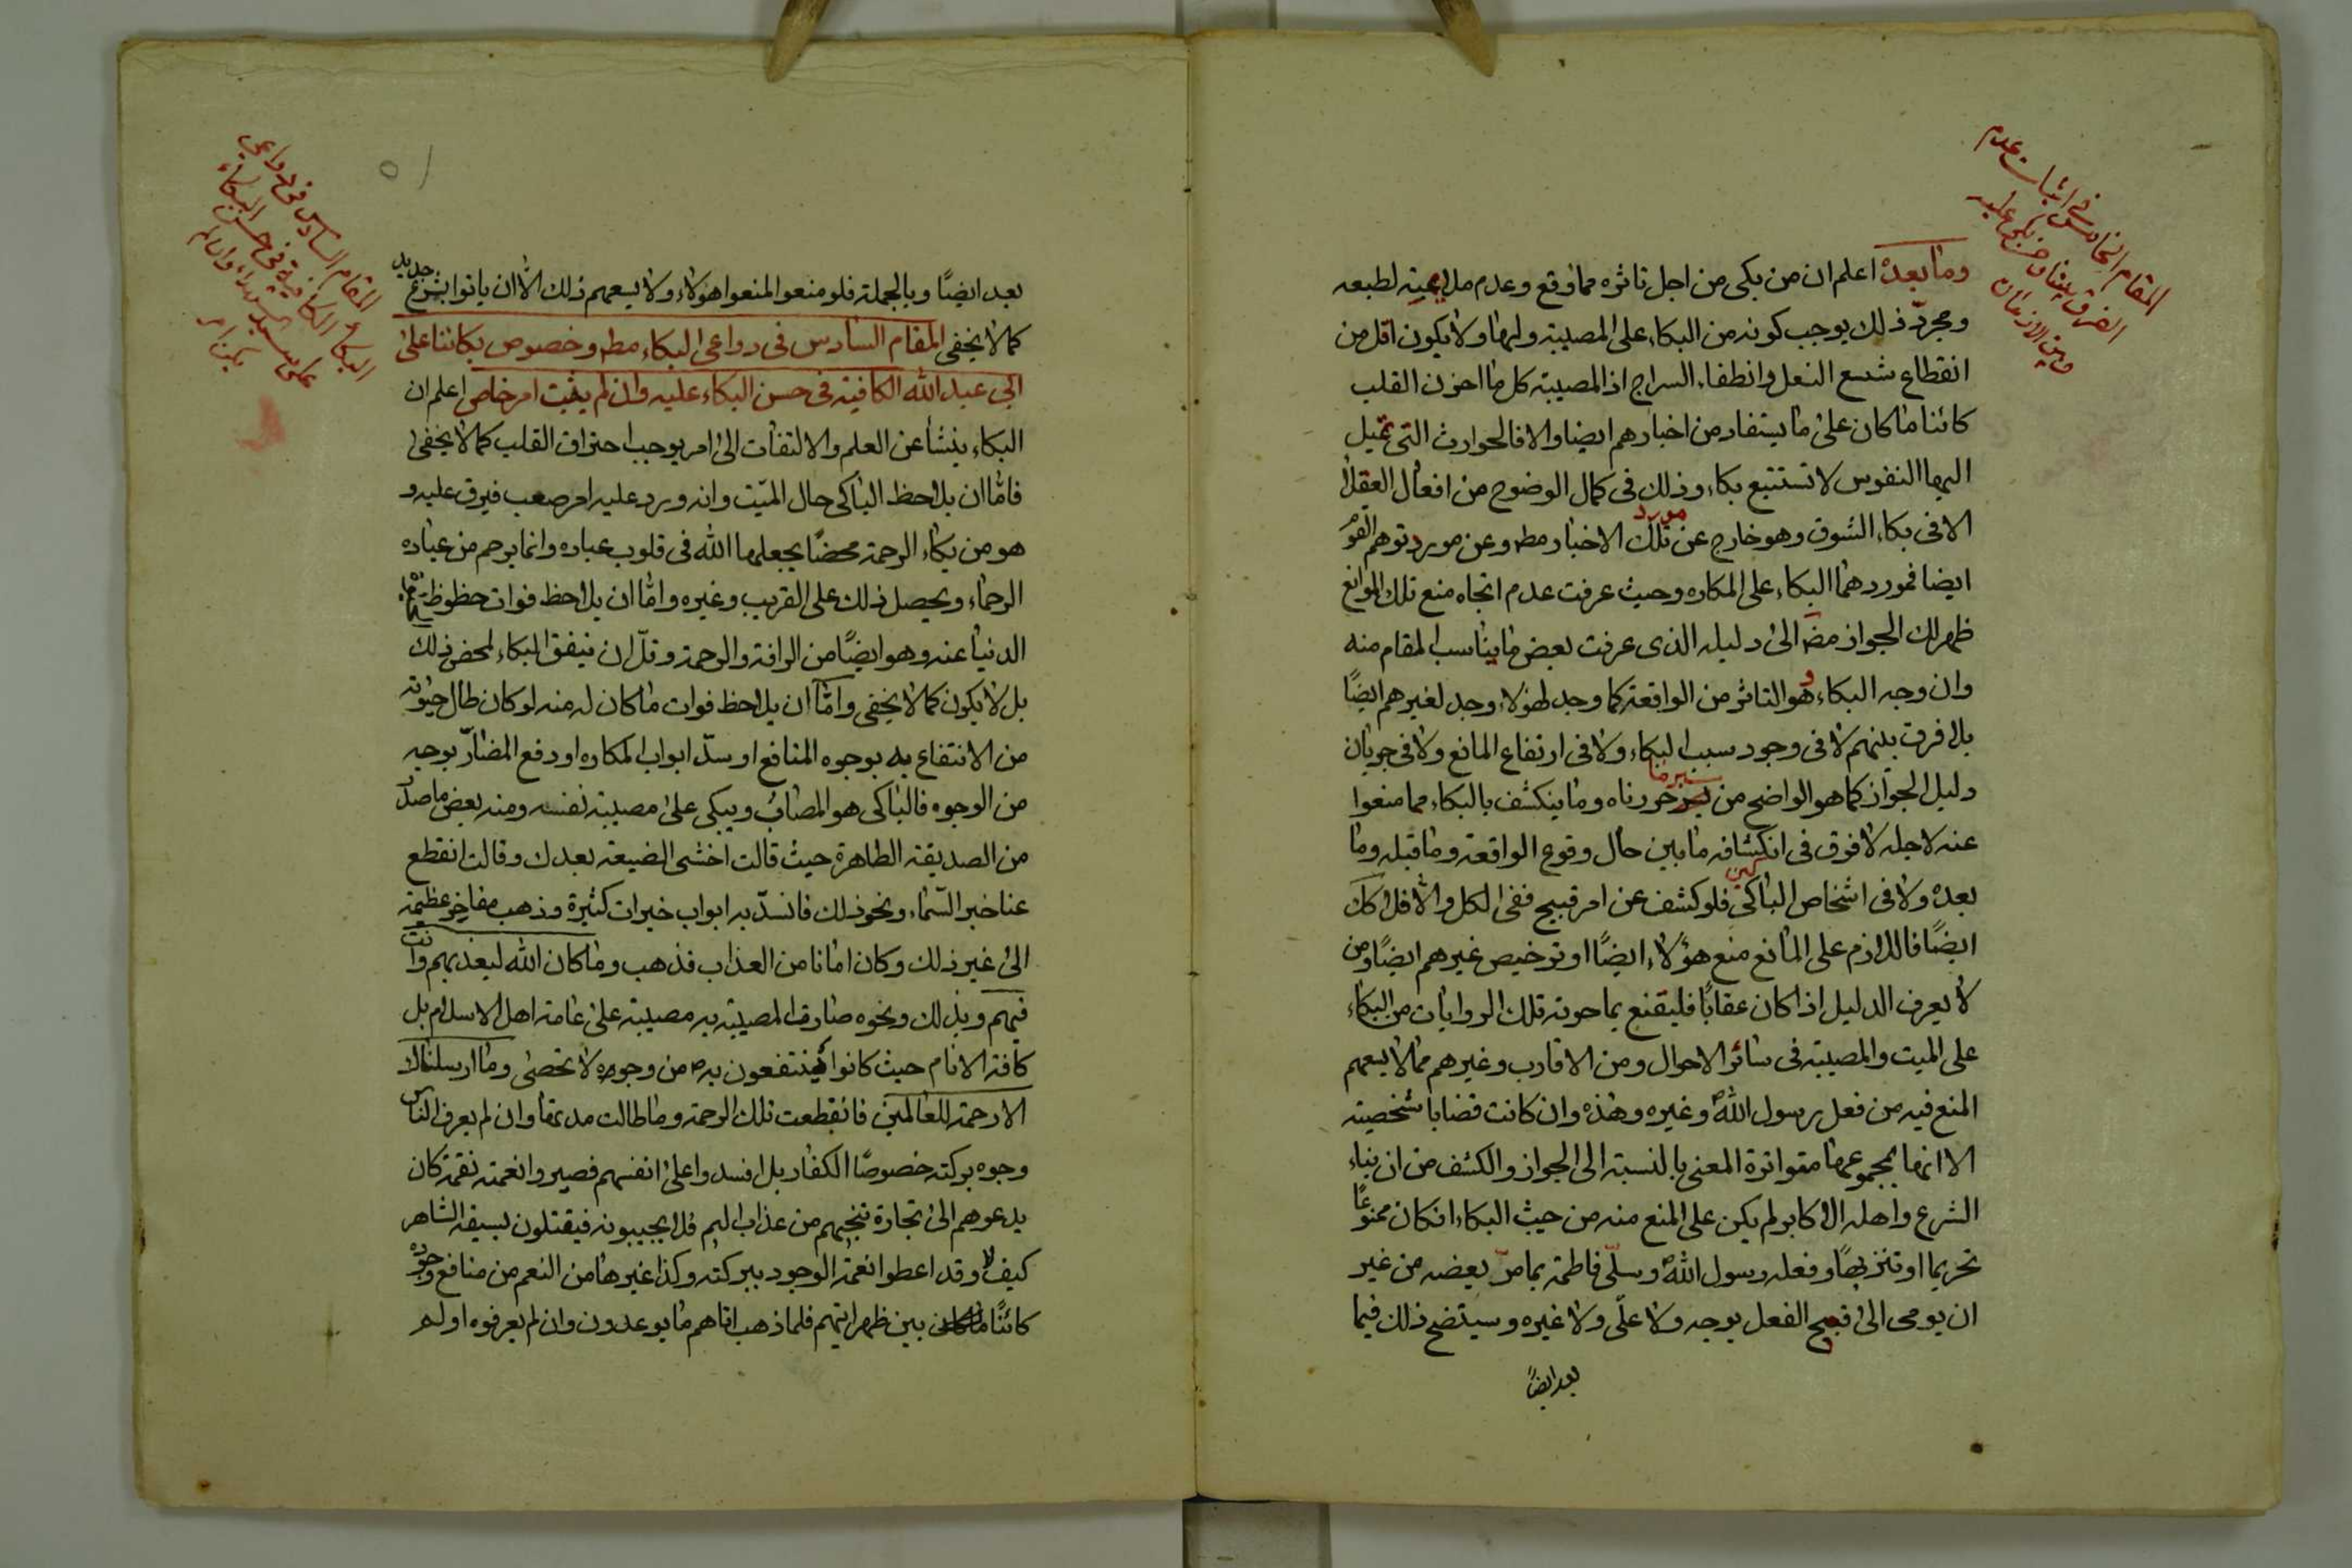 المقام الخامس في اثبات عدم
الفرق بيننا و من بكى عليه
و بين الازمان
وما بعده اعلم ان من بكى من اجل تاثره مما وقع وعدم ملايمته لطبعه
ومجرد ذلك يوجب كونه من البكاء على المصيبة ولها ولا يكون اقل من
انقطاع شسع النعل وانطفاء السراج اذ المصيبة كل ما احزن القلب
كائنا ما كان على ما يستفاد من اخبارهم ايضا والا فالحوادث التى تميل
اليها النفوس لا تستتبع بكاء وذلك فى كمال الوضوح من افعال العقلاء
الا فى بكاء الشوق وهو خارج عن مورد تلك الاخبار مط وعن مورد توهم القوم
ايضا فموردهما البكاء على المكاره وحيث عرفت عدم اتجاه منع تلك الموانع
ظهر لك الجواز مضا الى دليله الذى عرفت بعض ما يناسب المقام منه
وان وجه البكاء و هو التاثر من الواقعة كما وجد لهؤلاء وجد لغيرهم ايضًا
بلا فرق بينهم لا فى وجود سبب البكاء ولا فى ارتفاع المانع ولا فى جريان
دليل الجواز كما هو الواضح من سير ما حررناه وما ينكشف بالبكاء مما منعوا
عنه لاجله لا فرق فى انكشافه ما بين حال وقوع الواقعة وما قبله وما
بعده ولا فى اشخاص الباكين فلو كشف عن امر قبيح ففى الكل والا فلا كك
ايضًا فاللازم على المانع منع هؤلاء ايضًا او ترخيص غيرهم ايضًا ومن
لا يعرف الدليل اذا كان عقابًا فليقنع بما حوته تلك الروايات من البكاء
على الميت والمصيبة فى سائر الاحوال ومن الاقارب وغيرهم مما لا يسعهم
المنع فيه من فعل رسول الله وغيره وهذه وان كانت قضايا شخصية
الا انها بمجموعها متواترة المعنى بالنسبة الى الجواز والكشف من ان بناء
الشرع واهله الاكابر لم يكن على المنع منه من حيث البكاء افكان ممنوعًا
تحريما او تنزيهًا وفعله رسول الله وسلّى فاطمة بما مرّ بعضه من غير
ان يومى الى قبح الفعل بوجه ولا علّى ولا غيره وسيتضح ذلك فيما
بعد ايضًا
٥١
المقام السادس فى دواعى
البكاء الكافية فى حسن البكاء
على سيد الشهداء وان لم
يكن امر
بعد ايضًا وبالجملة فلو منعوا لمنعوا هؤلاء ولا يسعهم ذلك الا ان ياتوا بشرع جديد
كما لا يخفى المقام السادس فى دواعى البكاء مط وخصوص بكائنا على
ابى عبد الله الكافية فى حسن البكاء عليه وان لم يثبت امر خاص اعلم ان
البكاء ينشأ عن العلم والالتفات الى امر يوجب احتراق القلب كما لا يخفى
فامّا ان يلاحظ الباكى حال الميّت وانه ورد عليه امر صعب فيرق عليه و
هو من بكاء الرحمة محضًا يجعلها الله فى قلوب عباده وانما يرحم من عباده
الرحماء ويحصل ذلك على القريب وغيره وامّا ان يلاحظ فوات حظوظ
الدنيا عنه وهو ايضًا من الرافة والرحمة وقلّ ان يتفق البكاء لمحض ذلك
بل لا يكون كما لا يخفى وامّا ان يلاحظ فوات ما كان له منه لو كان طال حيوته
من الانتفاع به بوجوه المنافع او سدّ ابواب المكاره او دفع المضارّ بوجه
من الوجوه فالباكى هو المصاب ويبكى على مصيبة نفسه ومنه بعض ما صدر
من الصديقة الطاهرة حيث قالت اخشى الضيعة بعدك وقالت انقطع
عنا خبر السّماء ونحو ذلك فانسدّ به ابواب خيرات كثيرة وذهب مفاخر عظيمة
الى غير ذلك وكان امانا من العذاب فذهب وما كان الله ليعذبهم وانت
فيهم وبذلك ونحوه صارت المصيبة به مصيبة على عامة اهل الاسلام بل
كافة الانام حيث كانوا ينتفعون به من وجوه لا تحصى وما ارسلناك
الا رحمة للعالمين فانقطعت تلك الرحمة وما طالت مدتها وان لم يعرف الناس
وجوه بركته خصوصًا الكفار بل افسدوا على انفسهم فصيروا نعمته نقمة كان
يدعوهم الى تجارة تنجيهم من عذاب اليم فلا يجيبونه فيقتلون بسيفه الشاهر
كيف لا وقد اعطوا نعمة الوجود ببركته وكذا غيرها من النعم من منافع وجوده
كائنًا ما كان بين ظهرانيهم فلما ذهب اتاهم ما يوعدون وان لم يعرفوه او لم